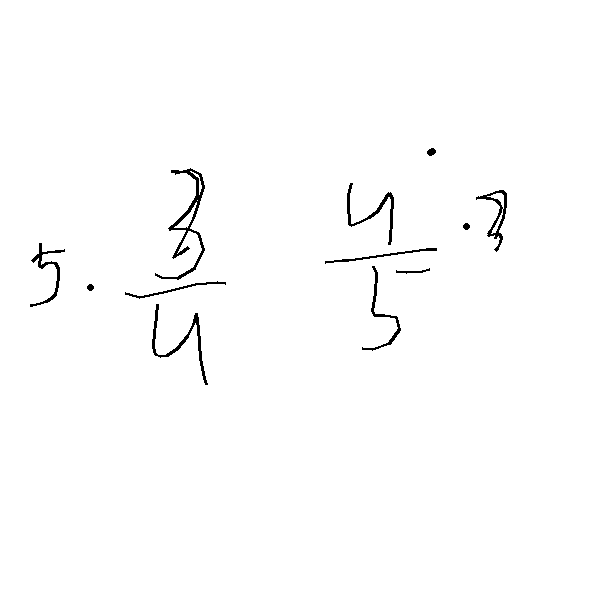 5 · 3/4 4/5 · 3